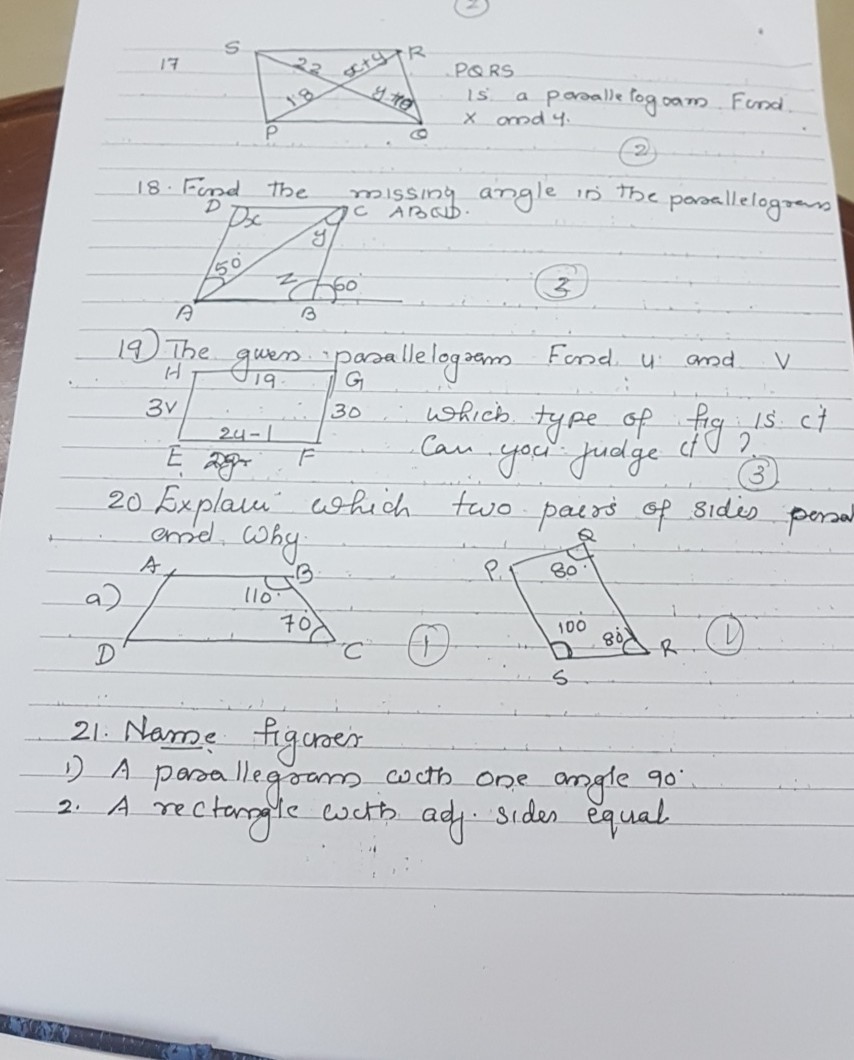 2
S R
17 22 x+y PQRS
18 y+10 Is a parallelogram Find
P Q x and y.
2
18. Find the missing angle in the parallelogram
D C ABCD.
x y
50
z 60
A B
3
19) The given parallelogram Find u and v
H 19 G
3v 30 which type of fig is it
2u-1
E F Can you judge it ?
3
20 Explain which two pairs of sides paral
and why
A B P Q
a) 110 80
70 100 80
D C 1 S R 1
21. Name figures
1) A parallegram with one angle 90°
2. A rectangle with adj. sides equal